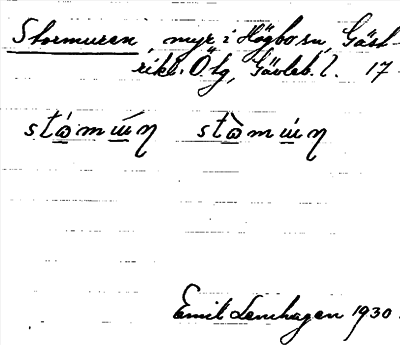 Stormuren, myr i Högbo sn, Gäst-
rikl. Ö. tg, Gävleb. l. 17
stώ̲mɯ̲́η stὼ̲mɯ̲́η
Emil Lenhagen 1930.